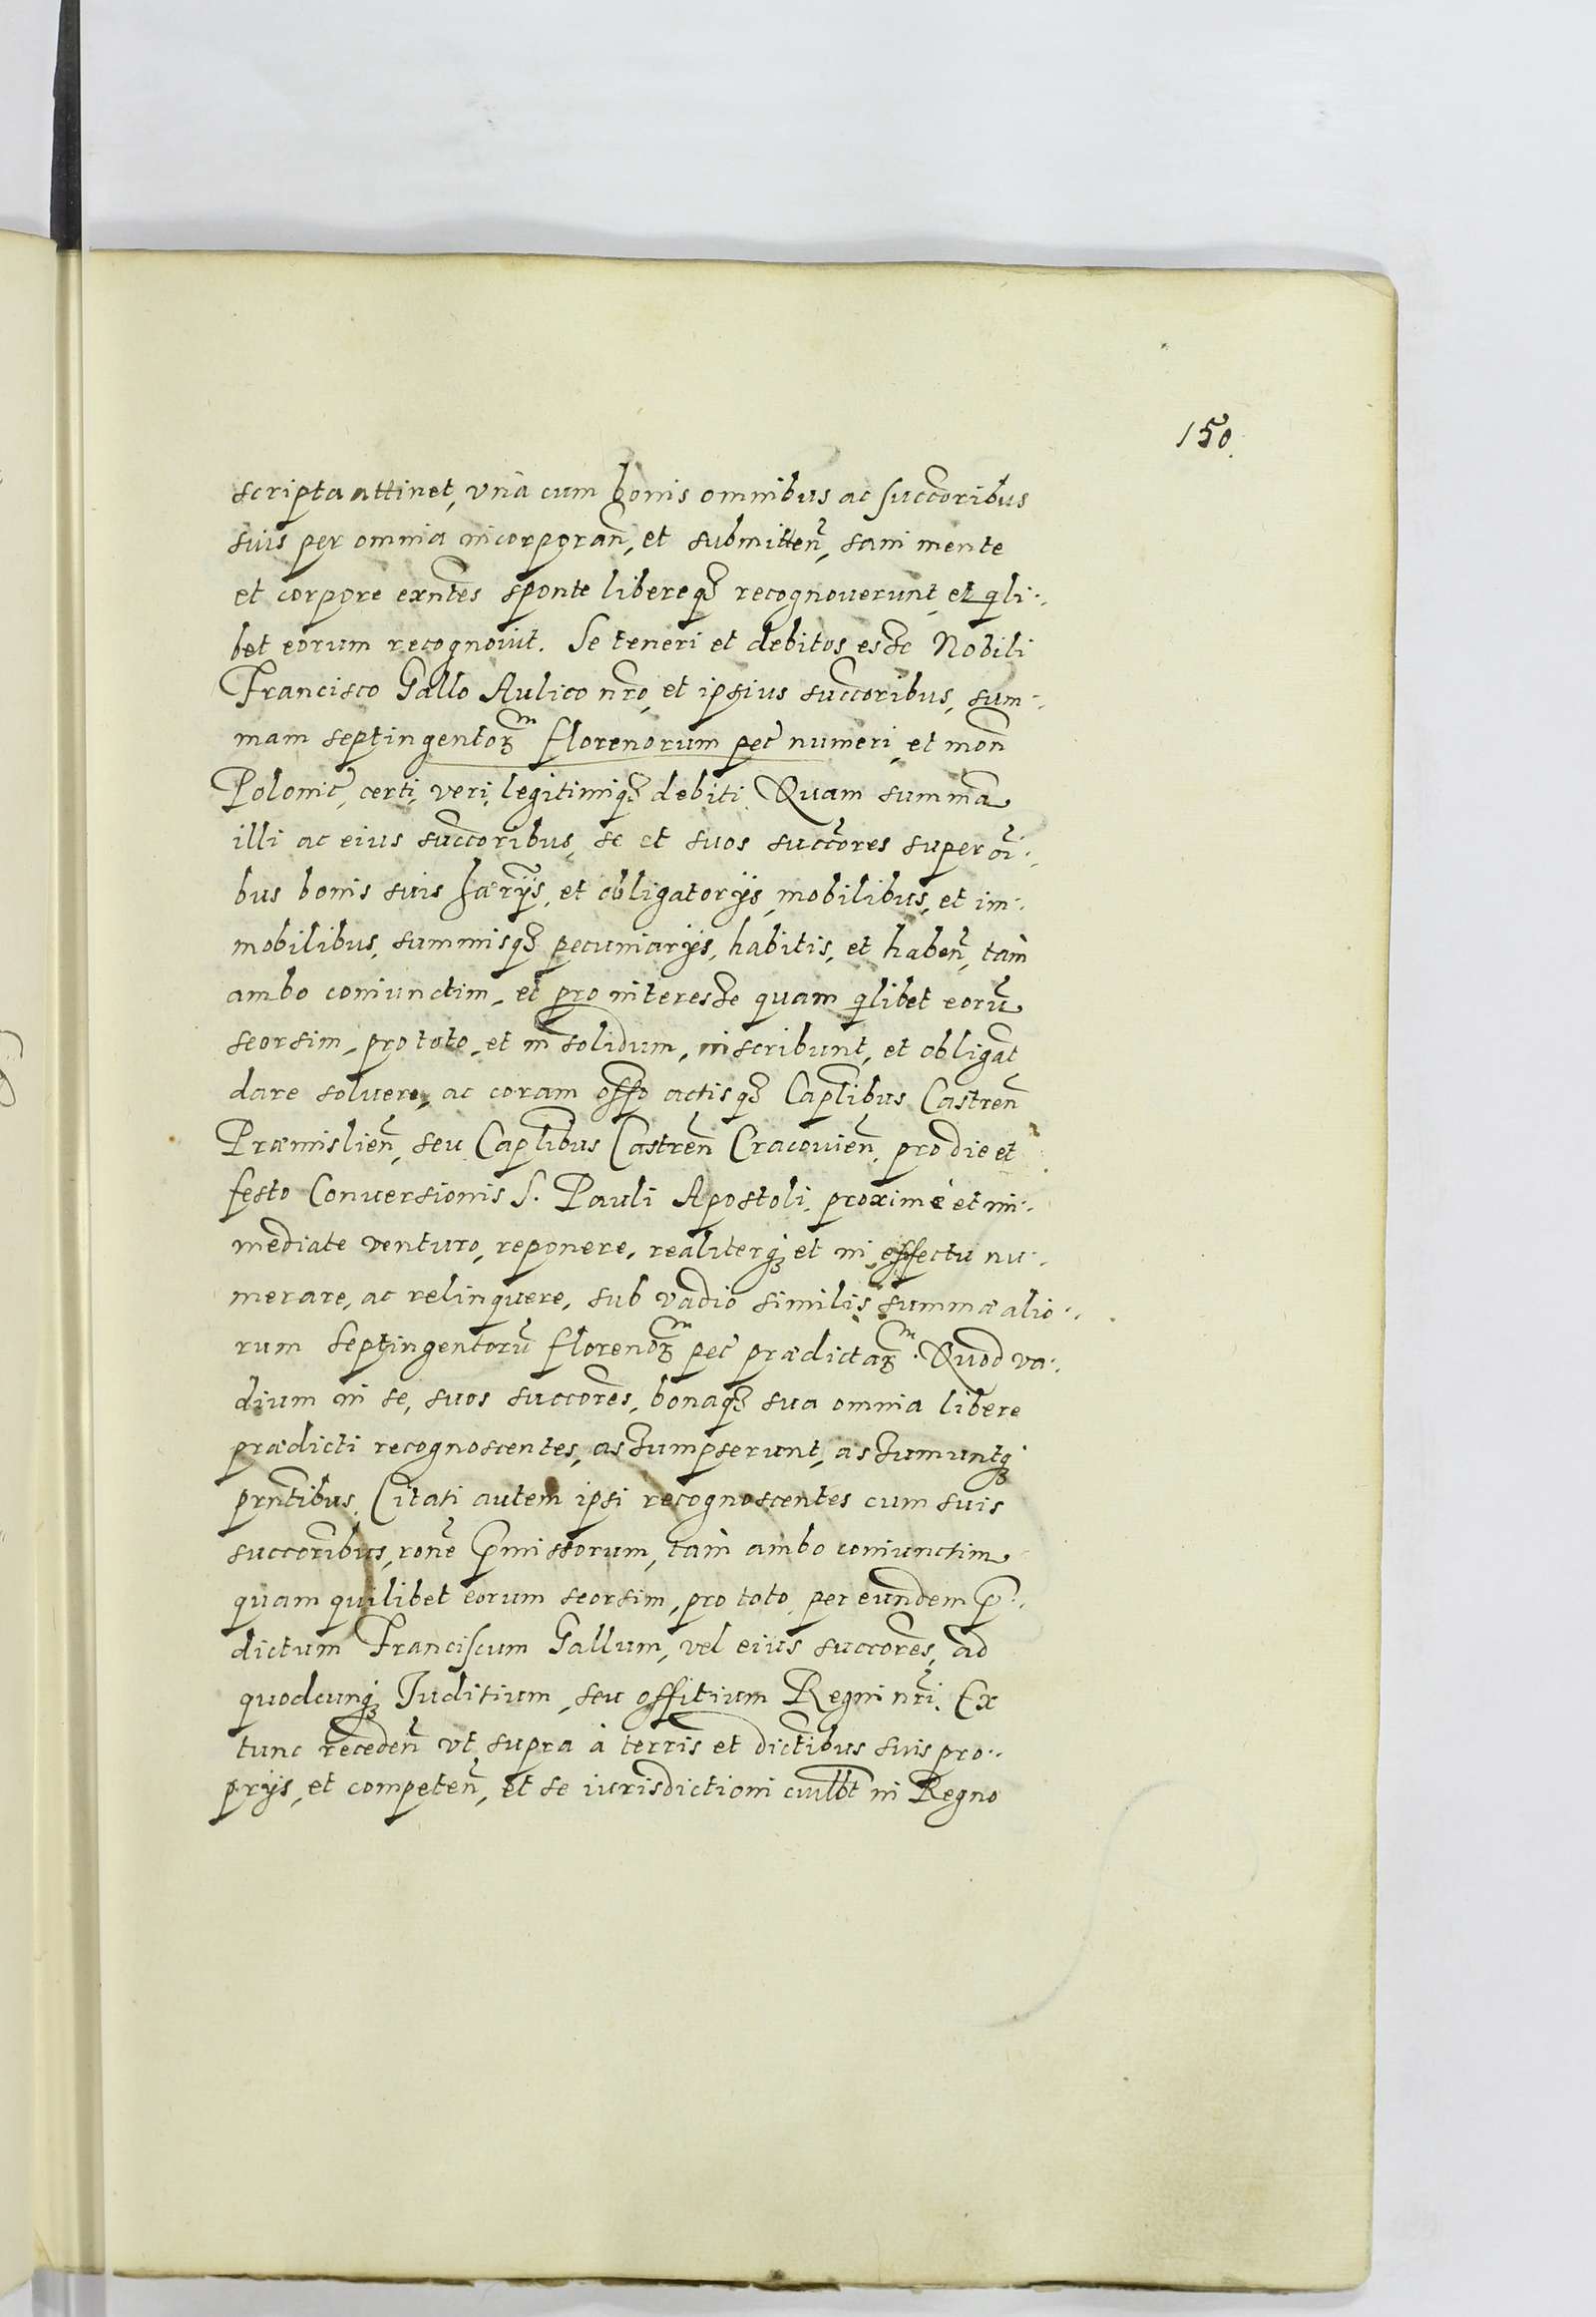 150.
scripta attinet, vnà cum bonis omnibus ac succoribus
suis per omnia incorporan̄, et submitten̄, sani mente
et corpore exn̄tes sponte libereqꝫ recognouerunt, et qli-
bet eorum recognovit. Se teneri et debitos esse Nobili
Francisco Gallo Aulico nr̄o, et ipsius succoribus, sum-
mam septingentoꝝ florenorum pec̄ numeri, et mon̄
Polonic̄, certi, veri, legitimiqꝫ debiti. Quam summā
illi ac eius succoribus, se et suos succores super oī-
bus bonis suis hær̄ijs, et obligatorijs, mobilibus, et im-
mobilibus, summisqꝫ pecuniarijs, habitis, et haben̄, tam
ambo coniunctim, et pro interesse quam qlibet eorū
seorsim, pro toto, et in solidum, inscribunt, et obligāt
dare solvere, ac coram offo actisqꝫ Cap̄libus Castren̄
Præmislien̄, seu Cap̄libus Castren̄ Cracouien̄, pro die et
festo Conversionis S. Pauli Apostoli, proximè et im-
mediate venturo, reponere, realiterqꝫ et in effectu nu-
merare, ac relinquere, sub vadio similis summæ alio-
rum septingentorū florenoꝝ pec̄ prædictaꝝ. Quod va-
dium in se, suos succores, bonaqꝫ sua omnia libere
prædicti recognoscentes, assumpserunt, assumuntqꝫ
prn̄tibus. Citati autem ipsi recognoscentes cum suis
succoribus, ron̄e p̄missorum, tam ambo coniunctim
quam quilibet eorum seorsim, pro toto, per eundem p̄-
dictum Franciscum Gallum, vel eius succores, ad
quodcunqꝫ Iuditium, seu offitium Regni nr̄i. Ex
tunc receden̄ vt supra à terris et dictibus suis pro-
prijs, et competen̄, et se iurisdictioni cuilbt in Regno